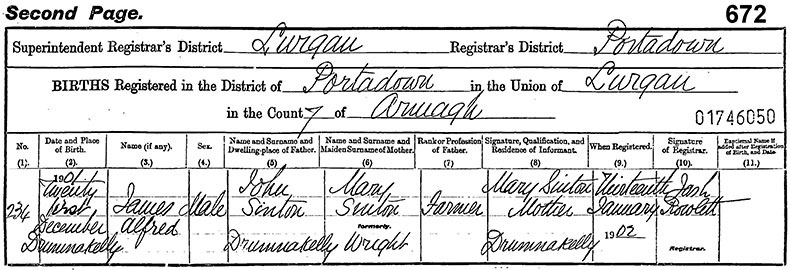 Second Page. 672
Superintendent Registrar's District Lurgan Registrar's District Portadown
BIRTHS Registered in the District of Portadown in the Union of Lurgan
in the County of Armagh 01746050
No. Date and Place of Birth. Name (if any). Sex. Name and Surname and Dwelling-place of Father. Name and Surname and Maiden Surname of Mother. Rank or Profession of Father. Signature, Qualification, and Residence of Informant. When Registered. Signature of Registrar. Baptismal Name if added after Registration of Birth, and Date
(1). (2). (3). (4). (5) (6) (7) (8) (9.) (10.) (11.)
1901
Twenty John Mary Mary Sinton Thirteenth Jash
234 first James Male Sinton Sinton Farmer Mother January Rowlett
December Alfred formerly.
Drumnakelly Drumnakelly Wright Drumnakelly 1902 Registrar.